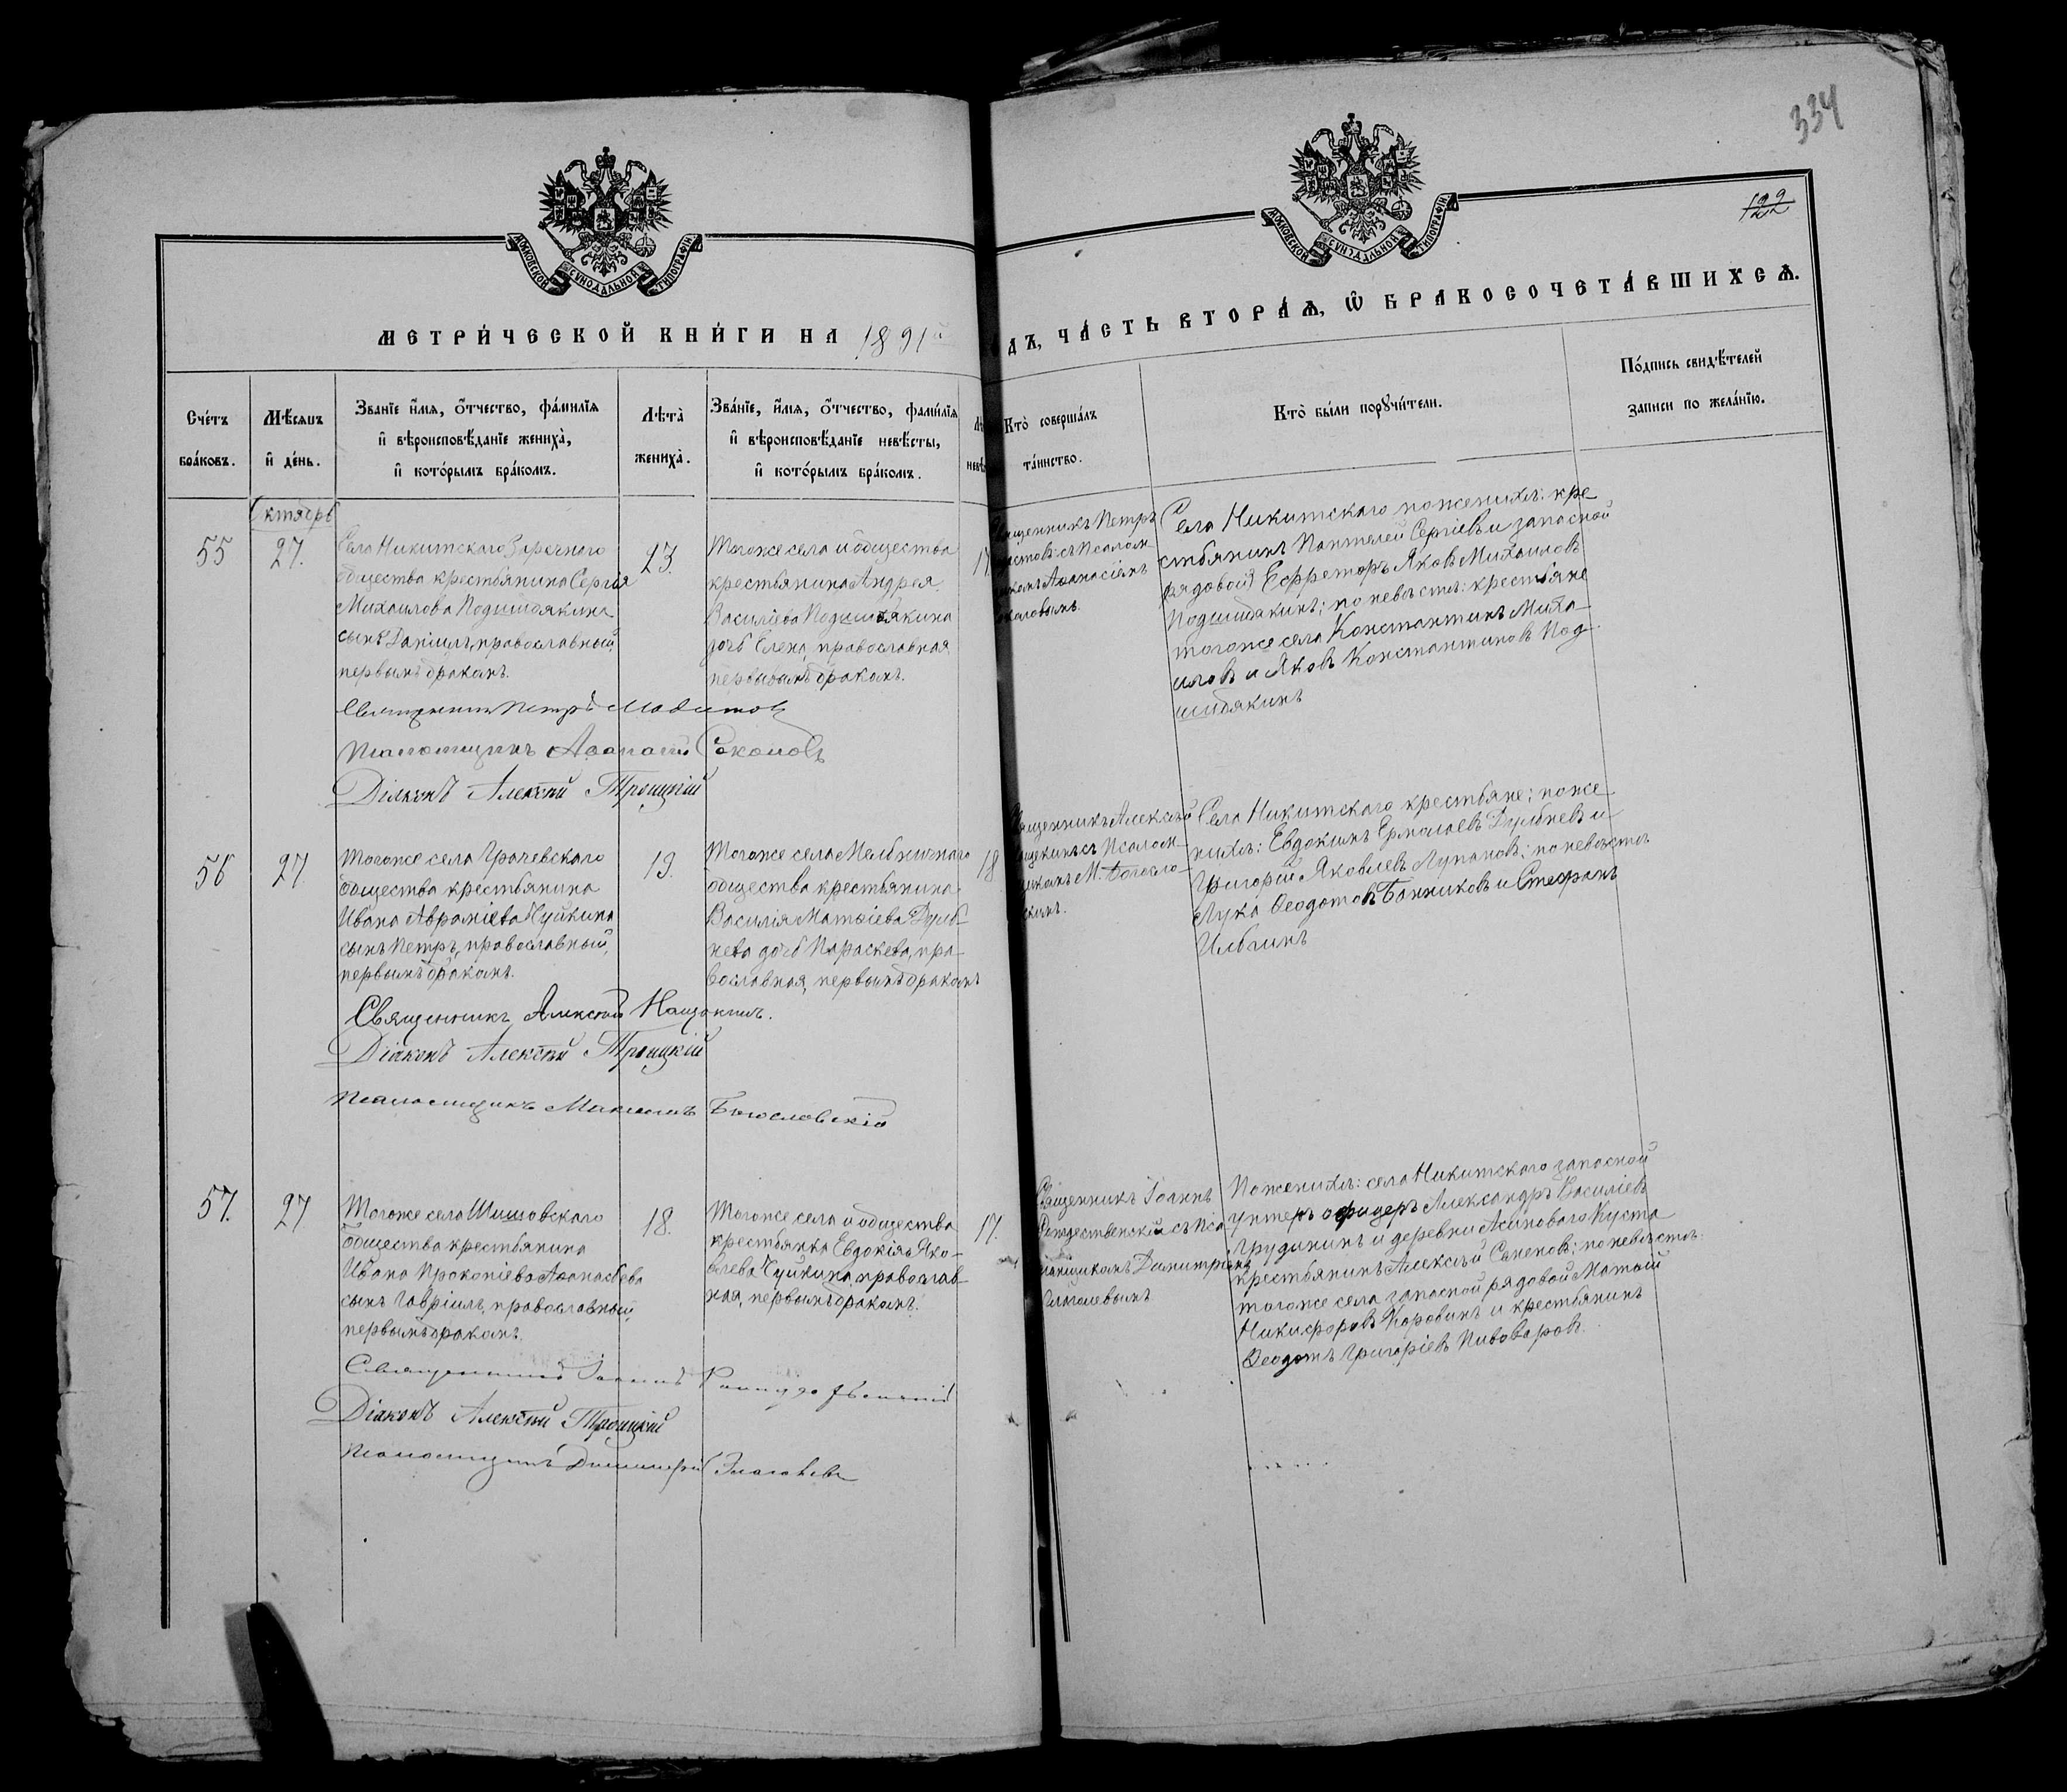 334
122
МОСКОВСКОЙ СѴНОДАЛЬНОЙ ТИПОГРАФІИ
МОСКОВСКОЙ СѴНОДАЛЬНОЙ ТИПОГРАФІИ
МЕТРИ́ЧЕСКОЙ КНИ́ГИ НА 1891й
ДЪ, ЧА́СТЬ ВТОРА́Ѧ, Ѡ҆ БРАКОСОЧЕТА́ВШИХСѦ.
Сче́тъ бра́ковъ.
Мѣ́сяцъ и҆ де́нь.
Зва́нїе и҆́мя, ѻ҆́тчество, фами́лїя
и҆ вѣроисповѣ́данїе жениха̀,
и҆ кото́рымъ бра́комъ.
Лѣта̀ жениха̀.
Зва́нїе, и҆́мя, ѻ҆́тчество, фами́лїя
и҆ вѣроисповѣ́данїе невѣ́сты,
и҆ кото́рымъ бра́комъ.
Кто̀ соверша́лъ
та́инство.
Кто̀ бы́ли порꙋчи́тели.
По́дпись свидѣ́телей
за́писи по жела́нїю.
Октябрь
55
27.
Села Никитскаго Заречнаго
общества крестьянина Сергія
Михаилова Подшибякина
сынъ Даніилъ, православный,
первымъ бракомъ.
23.
Тогоже села и общества
крестьянина Андрея
Василіева Подшибякина
дочь Елена, православная
первымъ бракомъ.
17
Священникъ Петръ
съ Псалом-
Аѳанасіемъ
Села Никитскаго по женихѣ: кре-
стьянинъ Пантелей Сергіевъ и запасной
(рядовой) Ефрейторъ Яковъ Михаиловъ
Подшибякинъ; по невѣстѣ: крестьяне
тогоже села Константинъ Миха-
иловъ и Яковъ Константиновъ Под-
шибякинъ
Священникъ Петръ
Псаломщикъ Аѳанасій Соколовъ
Діаконъ Алексѣй Троицкій
56
27
Тогоже села Грачевскаго
общества крестьянина
Ивана Авраміева Чуйкина
сынъ Петръ, православный,
первымъ бракомъ.
19.
Тогоже села Мельничнаго
общества крестьянина
Василія Матѳіева Дуль-
нева дочь Параскева, пра-
вославная, первымъ бракомъ
18
Священникъ Алексѣй
съ Псалом-
М. Богосло-
Села Никитскаго крестьяне; по же-
нихѣ: Евдокимъ Ермолаевъ Дульневъ и
Григорій Яковлевъ Лупановъ; по невѣстѣ
Лука Ѳеодотовъ Банниковъ и Стефанъ
Ильинъ
Священникъ Алексѣй Нащокинъ.
Діаконъ Алексѣй Троицкій
Псаломщикъ Михаилъ Богословскій
57.
27
Тогоже села Шишовскаго
общества крестьянина
Ивана Прокопіева Аѳанасьева
сынъ Гавріилъ, православный,
первымъ бракомъ.
18.
Тогоже села и общества
крестьянка Евдокія Яко-
влева Чуйкина, православ-
ная, первымъ бракомъ.
17.
Священникъ Іоаннъ
Рождественскій съ Пса-
ломщикомъ Димитріемъ
Глаголевымъ
По женихѣ: села Никитскаго запасной
Унтеръ офицеръ Александръ Василіевъ
Грудининъ и деревни Асиноваго Куста
крестьянинъ Алексѣй Семеновъ; по невѣстѣ:
тогоже села запасной рядовой Матѳій
Никифоровъ Коровинъ и крестьянинъ
Ѳеодотъ Григоріевъ Пивоваровъ.
Священникъ Іоаннъ Рождественскій
Діаконъ Алексѣй Троицкій
Псаломщикъ Димитрій Глаголевъ